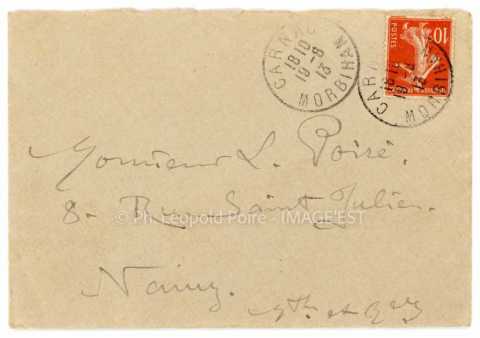 CARNAC
18 10
19 - 8
13
MORBIHAN
10
POSTES
CARNAC
18 10
MORBIHAN
Monsieur L. Poiré.
8 - Rue Saint Julien.
© Ph. Léopold Poiré - IMAGE'EST
Nancy.
Mthe et